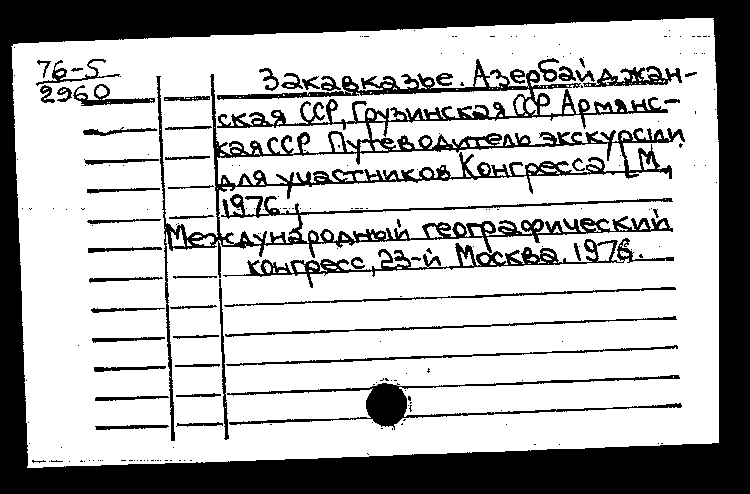 76-5
2960
Закавказье. Азербайджан-
ская ССР, Грузинская ССР, Армянс-
кая ССР Путеводитель экскурсии
для участников Конгресса [М.,
1976.]
Международный географический
конгресс, 23-й. Москва. 1976.